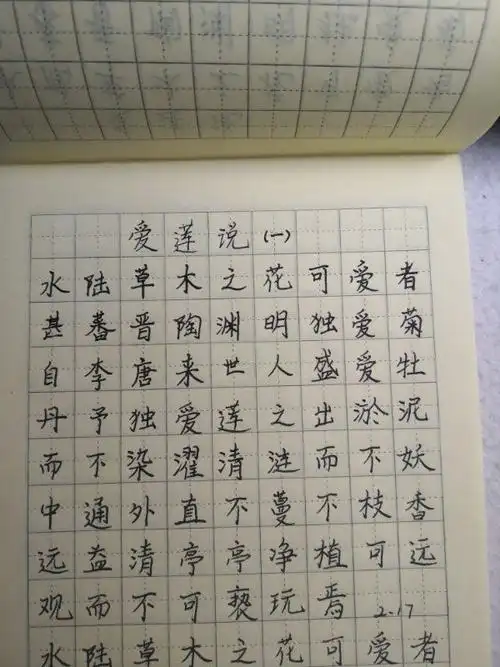 爱莲说(一)
水陆草木之花可爱者
甚蕃晋陶渊明独爱菊
自李唐来世人盛爱牡
丹予独爱莲之出淤泥
而不染濯清涟而不妖
中通外直不蔓不枝香
远益清亭亭净植可远
观而不可亵玩焉 2.17
水陆草木之花可爱者